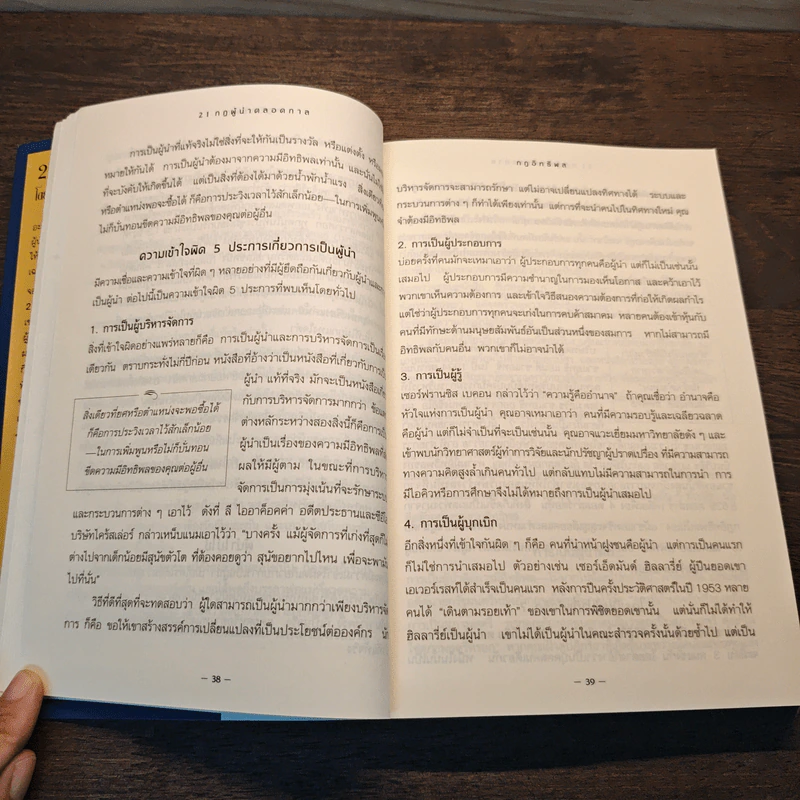 21 กฎผู้นำตลอดกาล
การเป็นผู้นำที่แท้จริงไม่ใช่สิ่งที่จะให้กันเป็นรางวัล หรือแต่งตั้ง
หมายให้กันได้ การเป็นผู้นำต้องมาจากความมีอิทธิพลเท่านั้น และนั่นไม่ใช่
ที่จะบังคับให้เกิดขึ้นได้ แต่เป็นสิ่งที่ต้องได้มาด้วยน้ำพักน้ำแรง สิ่งเดียวที่
หรือตำแหน่งพอจะซื้อได้ ก็คือการประวิงเวลาไว้สักเล็กน้อย—ในการเพิ่มพูน
ไม่ก็บั่นทอนขีดความมีอิทธิพลของคุณต่อผู้อื่น
ความเข้าใจผิด 5 ประการเกี่ยวการเป็นผู้นำ
มีความเชื่อและความเข้าใจที่ผิด ๆ หลายอย่างที่มีผู้ยึดถือกันเกี่ยวกับผู้นำและ
เป็นผู้นำ ต่อไปนี้เป็นความเข้าใจผิด 5 ประการที่พบเห็นโดยทั่วไป
1. การเป็นผู้บริหารจัดการ
สิ่งที่เข้าใจผิดอย่างแพร่หลายก็คือ การเป็นผู้นำและการบริหารจัดการเป็น
เดียวกัน ตราบกระทั่งไม่กี่ปีก่อน หนังสือที่อ้างว่าเป็นหนังสือที่เกี่ยวกับการ
ผู้นำ แท้ที่จริง มักจะเป็นหนังสือเกี่ยว
กับการบริหารจัดการมากกว่า ข้อแตก
ต่างหลักระหว่างสองสิ่งนี้ก็คือการ
ผู้นำเป็นเรื่องของความมีอิทธิพล
ผลให้มีผู้ตาม ในขณะที่การบริหาร
จัดการเป็นการมุ่งเน้นที่จะรักษาระบบ
สิ่งเดียวที่ยศหรือตำแหน่งจะพอซื้อได้
ก็คือการประวิงเวลาไว้สักเล็กน้อย
—ในการเพิ่มพูนหรือไม่ก็บั่นทอน
ขีดความมีอิทธิพลของคุณต่อผู้อื่น
และกระบวนการต่าง ๆ เอาไว้ ดังที่ ลี ไออาค็อคค่า อดีตประธานและซีอีโอ
บริษัทไครัสเล่อร์ กล่าวเหน็บแนมเอาไว้ว่า “บางครั้ง แม้ผู้จัดการที่เก่งที่สุดก็
ต่างไปจากเด็กน้อยมีสุนัขตัวโต ที่ต้องคอยดูว่า สุนัขอยากไปไหน เพื่อจะพา
ไปที่นั่น”
วิธีที่ดีที่สุดที่จะทดสอบว่า ผู้ใดสามารถเป็นผู้นำมากกว่าเพียงบริหารจัด
การ ก็คือ ขอให้เขาสร้างสรรค์การเปลี่ยนแปลงที่เป็นประโยชน์ต่อองค์กร
— 38 —
กฎอิทธิพล
บริหารจัดการจะสามารถรักษา แต่ไม่อาจเปลี่ยนแปลงทิศทางได้ ระบบและ
กระบวนการต่าง ๆ ก็ทำได้เพียงเท่านั้น แต่การที่จะนำคนไปในทิศทางใหม่ คุณ
จำต้องมีอิทธิพล
2. การเป็นผู้ประกอบการ
บ่อยครั้งที่คนมักจะเหมาเอาว่า ผู้ประกอบการทุกคนคือผู้นำ แต่ก็ไม่เป็นเช่นนั้น
เสมอไป ผู้ประกอบการมีความชำนาญในการมองเห็นโอกาส และคว้าเอาไว้
พวกเขาเห็นความต้องการ และเข้าใจวิธีสนองความต้องการที่ก่อให้เกิดผลกำไร
แต่ใช่ว่าผู้ประกอบการทุกคนจะเก่งในการคบค้าสมาคม หลายคนต้องเข้าหุ้นกับ
คนที่มีทักษะด้านมนุษยสัมพันธ์อันเป็นส่วนหนึ่งของสมการ หากไม่สามารถมี
อิทธิพลกับคนอื่น พวกเขาก็ไม่อาจนำได้
3. การเป็นผู้รู้
เซอร์ฟรานซิส เบคอน กล่าวไว้ว่า “ความรู้คืออำนาจ” ถ้าคุณเชื่อว่า อำนาจคือ
หัวใจแห่งการเป็นผู้นำ คุณอาจเหมาเอาว่า คนที่มีความรอบรู้และเฉลียวฉลาด
คือผู้นำ แต่ก็ไม่จำเป็นที่จะเป็นเช่นนั้น คุณอาจแวะเยี่ยมมหาวิทยาลัยดัง ๆ และ
เข้าพบนักวิทยาศาสตร์ผู้ทำการวิจัยและนักปรัชญาผู้ปราดเปรื่อง ที่มีความสามารถ
ทางความคิดสูงล้ำเกินคนทั่วไป แต่กลับแทบไม่มีความสามารถในการนำ การ
มีไอคิวหรือการศึกษาจึงไม่ได้หมายถึงการเป็นผู้นำเสมอไป
4. การเป็นผู้บุกเบิก
อีกสิ่งหนึ่งที่เข้าใจกันผิด ๆ ก็คือ คนที่นำหน้าฝูงชนคือผู้นำ แต่การเป็นคนแรก
ก็ไม่ใช่การนำเสมอไป ตัวอย่างเช่น เซอร์เอ็ดมันด์ ฮิลลารี่ย์ ผู้ปีนยอดเขา
เอเวอร์เรสท์ได้สำเร็จเป็นคนแรก หลังการปีนครั้งประวัติศาสตร์ในปี 1953 หลาย
คนได้ “เดินตามรอยเท้า” ของเขาในการพิชิตยอดเขานั้น แต่นั่นก็ไม่ได้ทำให้
ฮิลลารี่ย์เป็นผู้นำ เขาไม่ได้เป็นผู้นำในคณะสำรวจครั้งนั้นด้วยซ้ำไป แต่เป็น
— 39 —